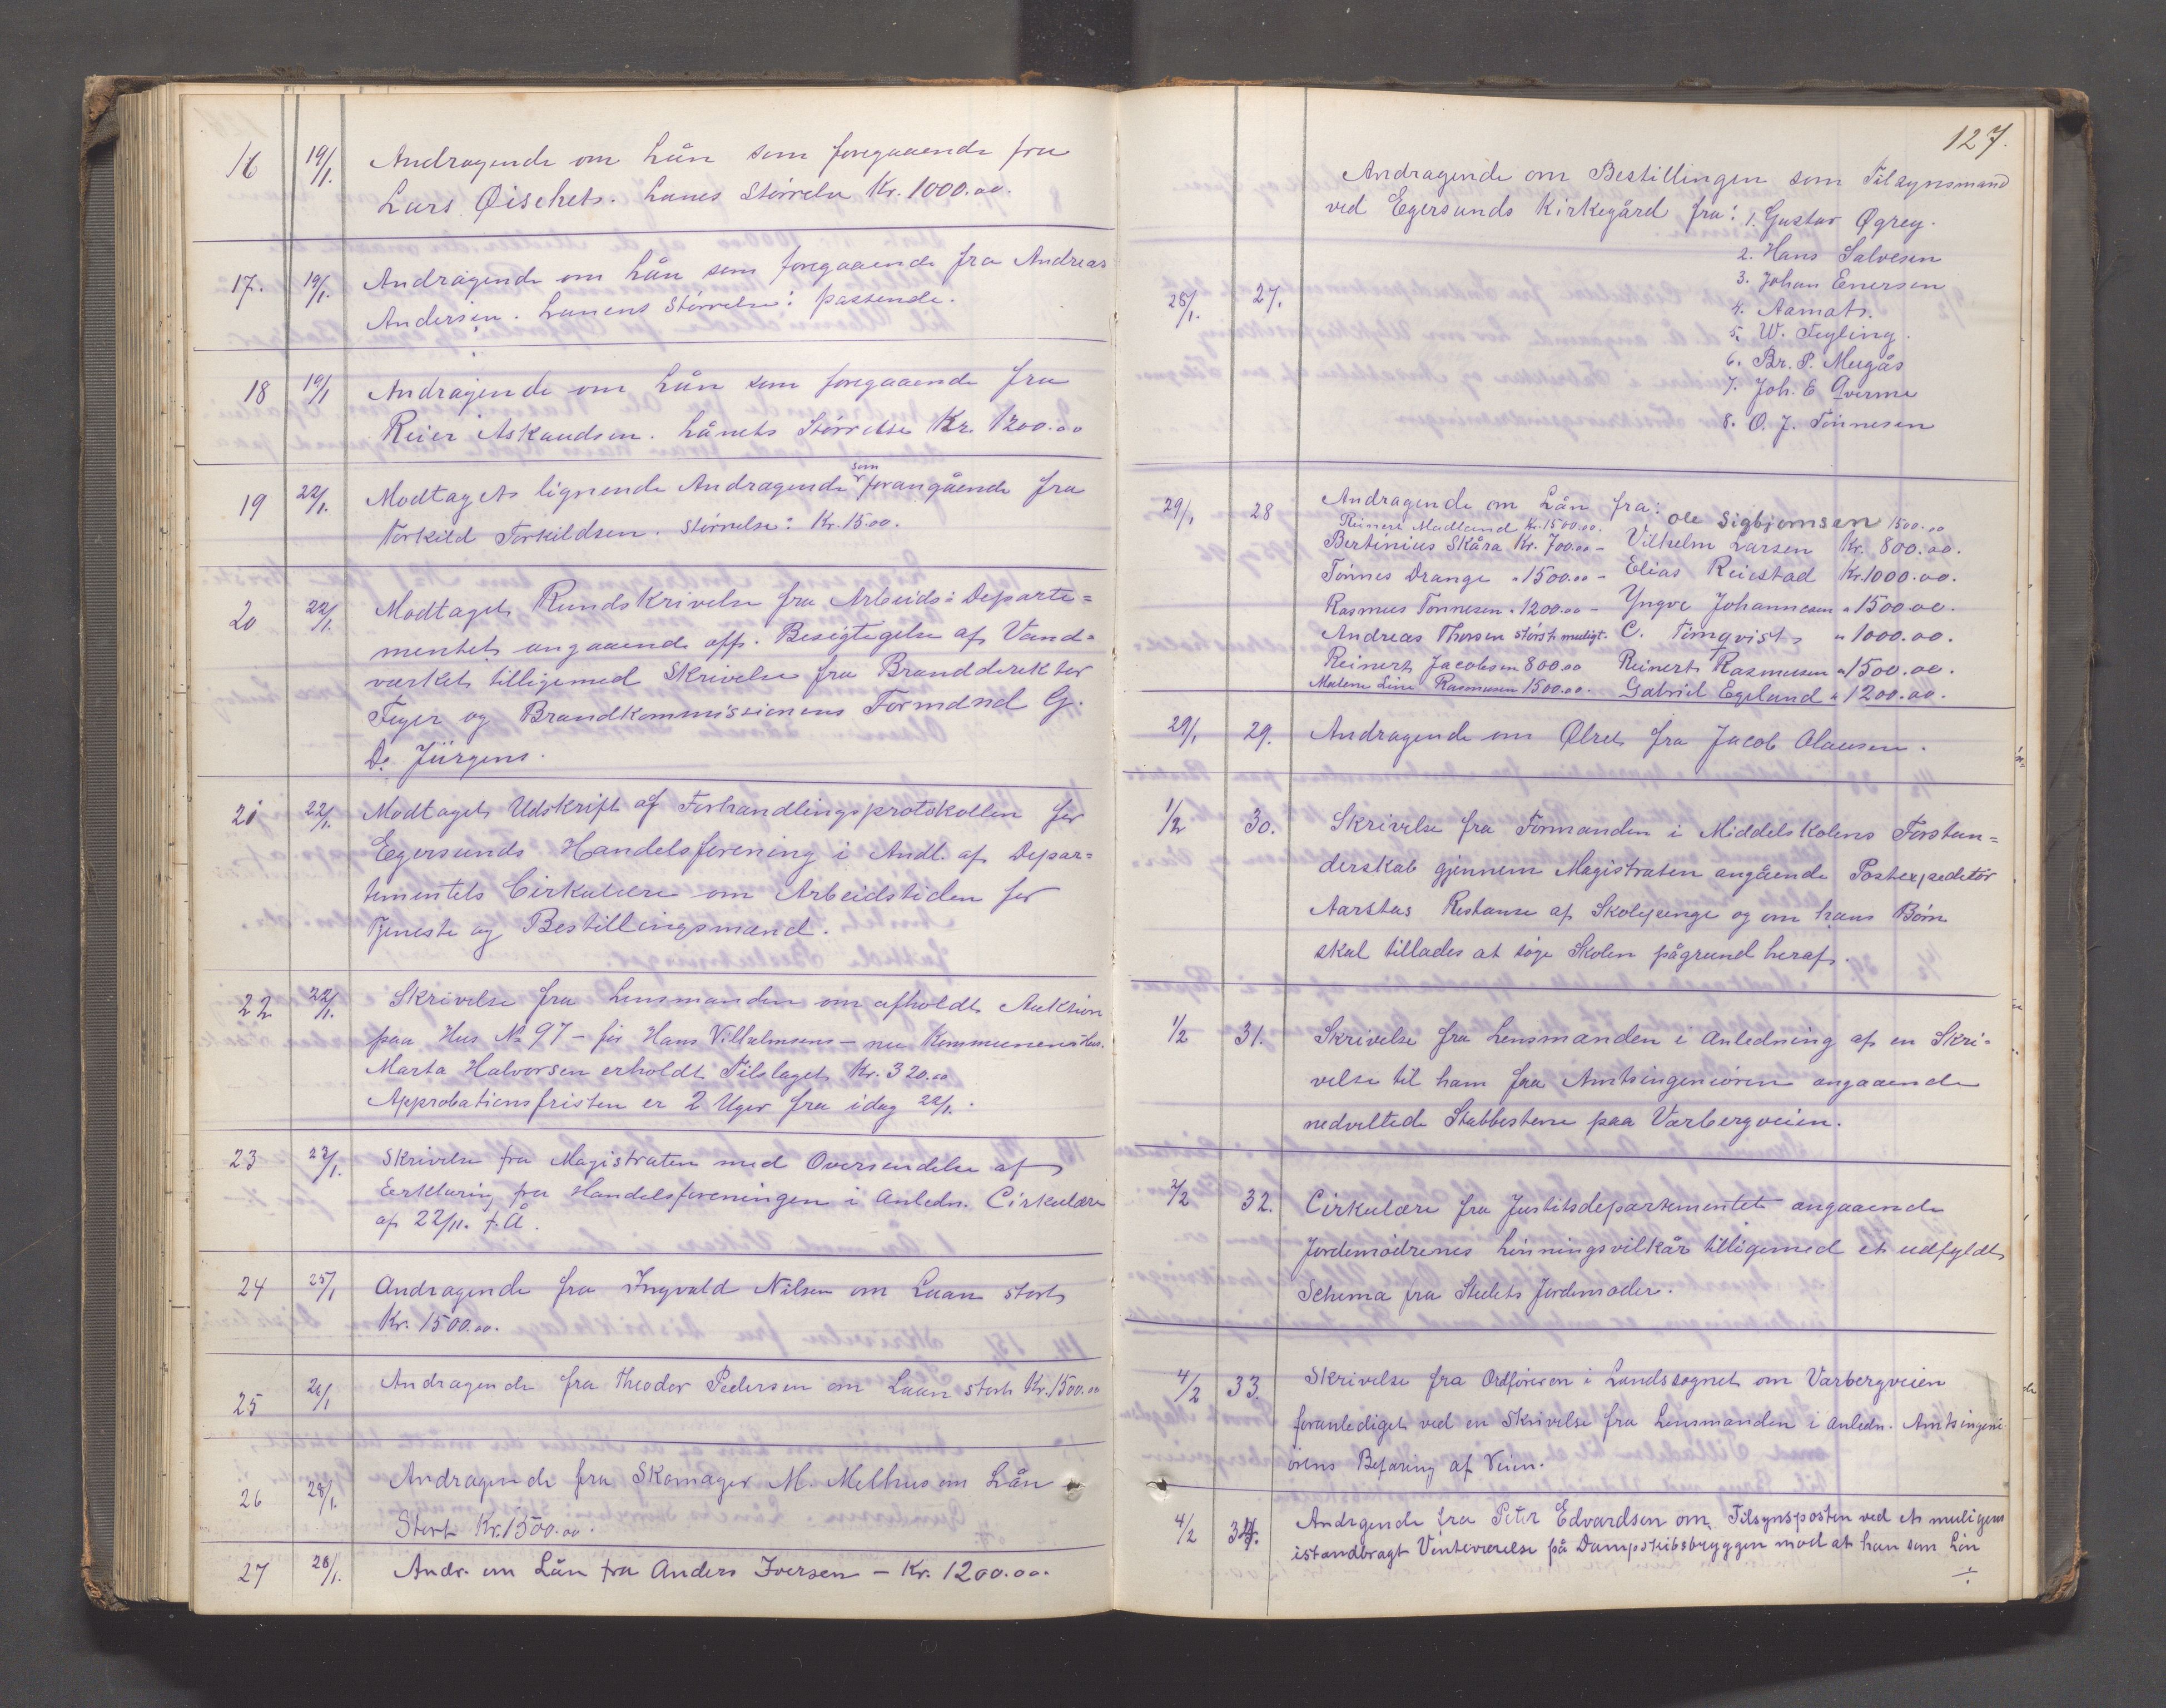 16 19/1. Andragende om Lån som foregaaende fra
Lars Øischets. Lanes Størrelse Kr. 1000.00.
17. 19/1. Andragende om Lån som foregaaende fra Andreas
Andersen. Lanens Størrelse: passende.
18 19/1 Andragende om Lån som foregaaende fra
Reier Askaudsen. Lånets Størrelse Kr. 1200.00
19 22/1. Modtaget lignende Andragende som forangående fra
Torkild Torkildsen. Størrelse: Kr. 15.00.
20 22/1. Modtaget Rundskrivelse fra Arbeids-Departe=
mentet angaaende off. Besigtigelse af Vand=
værket tilligemed Skrivelse fra Branddirektør
Feyer og Brandkommissionens Formand G.
D. Jürgens.
21 22/1. Modtaget Udskrift af Forhandlingsprotokollen for
Egersunds Handelsforening i Andl. af Depar=
tementets Cirkulære om Arbeidstiden for
Tjeneste og Bestillingsmænd.
22 22/1. Skrivelse fra Lensmanden om afholdt Auktion
paa Hus № 97 – før Hans Vilhelmsens – nu Kommunens Hus.
Marta Halvorsen erholdt Tilslaget Kr. 320.00
Approbationsfristen er 2 Uger fra idag 22/1.
23 23/1. Skrivelse fra Magistraten med Oversendelse af
Erklæring fra Handelsforeningen i Anledn. Cirkulære
af 22/11. f.Å.
24 25/1 Andragende fra Ingvald Nilsen om Laan stort
Kr. 1500.00.
25 26/1 Andragende fra Theodor Pedersen om Laan stort Kr. 1500.00
26 28/1. Andragende fra Skomager M. Melhus om Lån
Stort Kr. 1500.00.
27 28/1. Andr. om Lån fra Anders Iversen – Kr. 1200.00.
127.
Andragende om Bestillingen som Tilsynsmand
ved Egersunds Kirkegård fra: 1. Gustav Øgrey.
2. Hans Salvesen
28/1. 27. 3. Johan Enersen
4. Aamot.
5. W. Tegling.
6. Br. P. Meegås
7. Joh. E. Qverme
8. O. J. Tönnesen
29/1 28 Andragende om Lån fra: Ole Sigbjørnsen 1500.00
Reinert Madland Kr. 1500.00.
Bertinius Skåra Kr. 700.00 – Vilhelm Larsen Kr. 800.00.
Tönnes Drange " 1500.00 – Elias Reiestad Kr. 1000.00.
Rasmus Tönnesen " 1200.00 – Yngve Johannesen " 1500.00.
Andreas Thorsen størst muligt. C. Törnqvist " 1000.00.
Reinert Jacobsen 800.00 Reinert Rasmussen " 1500.00.
Malene Line Rasmussen 1500.00. Gabriel Egeland " 1200.00.
29/1 29. Andragende om Ølret fra Jacob Olaussen.
1/2 30. Skrivelse fra Formanden i Middelskolens Forstan=
derskab gjennem Magistraten angående Postexpeditør
Aarstas Restanse af Skolepenge og om hans Børn
skal tillades at søge Skolen pågrund heraf.
1/2 31. Skrivelse fra Lensmanden i Anledning af en Skri=
velse til ham fra Amtsingeniøren angaaende
nedveltede Stabbestene paa Varbergveien.
2/2 32. Cirkulære fra Justitsdepartementet angaaende
Jordemødrenes Lønningsvilkår tilligemed et udfyldt
Schema fra Stedets Jordemoder.
4/2 33. Skrivelse fra Ordføreren i Landssognet om Varbergveien
foranlediget ved en Skrivelse fra Lensmanden i Anledn. Amtsingeni
ørens Befaring af Veien.
4/2 34. Andragende fra Peter Edvardsen om Tilsynsposten ved et muligens
istandbragt Venteværelse på Dampskibsbryggen mod at han som Løn
./.